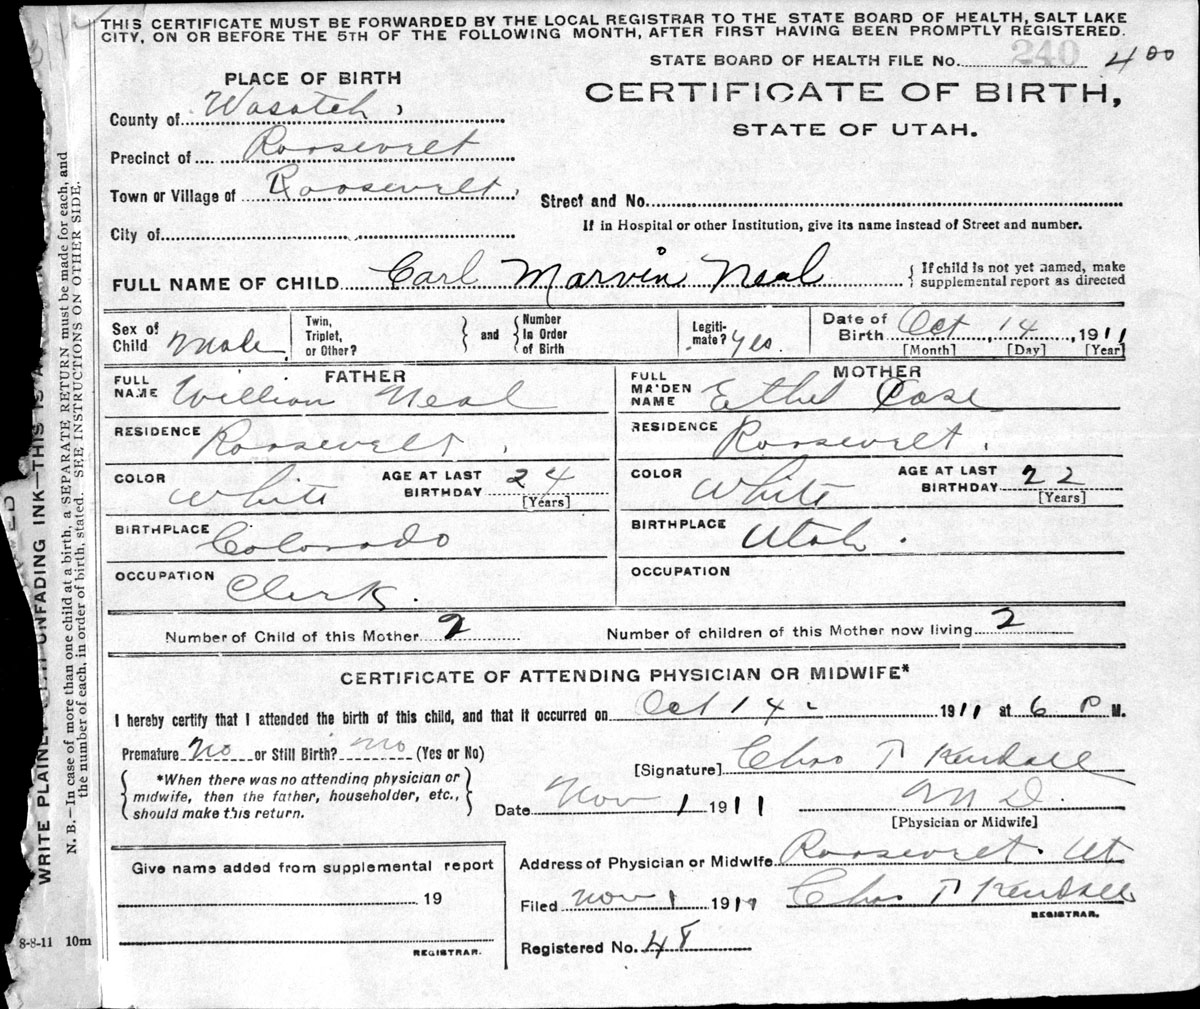 THIS CERTIFICATE MUST BE FORWARDED BY THE LOCAL REGISTRAR TO THE STATE BOARD OF HEALTH, SALT LAKE
CITY, ON OR BEFORE THE 5TH OF THE FOLLOWING MONTH, AFTER FIRST HAVING BEEN PROMPTLY REGISTERED.
STATE BOARD OF HEALTH FILE No. 240 400
PLACE OF BIRTH
CERTIFICATE OF BIRTH,
STATE OF UTAH.
County of Wasatch
Precinct of Roosevelt
Town or Village of Roosevelt
Street and No.
If in Hospital or other Institution, give its name instead of Street and number.
City of
FULL NAME OF CHILD Carl Marvin Neal
{ If child is not yet named, make
supplemental report as directed
Sex of
Child Male
Twin,
Triplet,
or Other?
} and {
Number
in Order
of Birth
Legiti-
mate? Yes
Date of
Birth Oct 14, 1911
[Month] [Day] [Year]
FATHER
FULL
NAME William Neal
RESIDENCE Roosevelt
COLOR White
AGE AT LAST
BIRTHDAY 24
[Years]
BIRTHPLACE Colorado
OCCUPATION Clerk.
MOTHER
FULL
MAIDEN
NAME Ethel Case
RESIDENCE Roosevelt
COLOR White
AGE AT LAST
BIRTHDAY 22
[Years]
BIRTHPLACE Utah.
OCCUPATION
Number of Child of this Mother 2
Number of children of this Mother now living 2
CERTIFICATE OF ATTENDING PHYSICIAN OR MIDWIFE*
I hereby certify that I attended the birth of this child, and that it occurred on Oct 14 1911 at 6 P M.
Premature No or Still Birth? No (Yes or No)
{ *When there was no attending physician or
midwife, then the father, householder, etc.,
should make this return. }
[Signature] Chas T Kendall
Date Nov 1 1911
M D.
[Physician or Midwife]
Address of Physician or Midwife Roosevelt. Ut
Filed Nov 1 1911 Chas T Kendall
REGISTRAR.
Registered No. 48
Give name added from supplemental report
19
REGISTRAR.
8-8-11 10m
N. B.—In case of more than one child at a birth, a SEPARATE RETURN must be made for each, and
the number of each, in order of birth, stated. SEE INSTRUCTIONS ON OTHER SIDE.
UNFADING INK—THIS IS A
WRITE PLAINLY